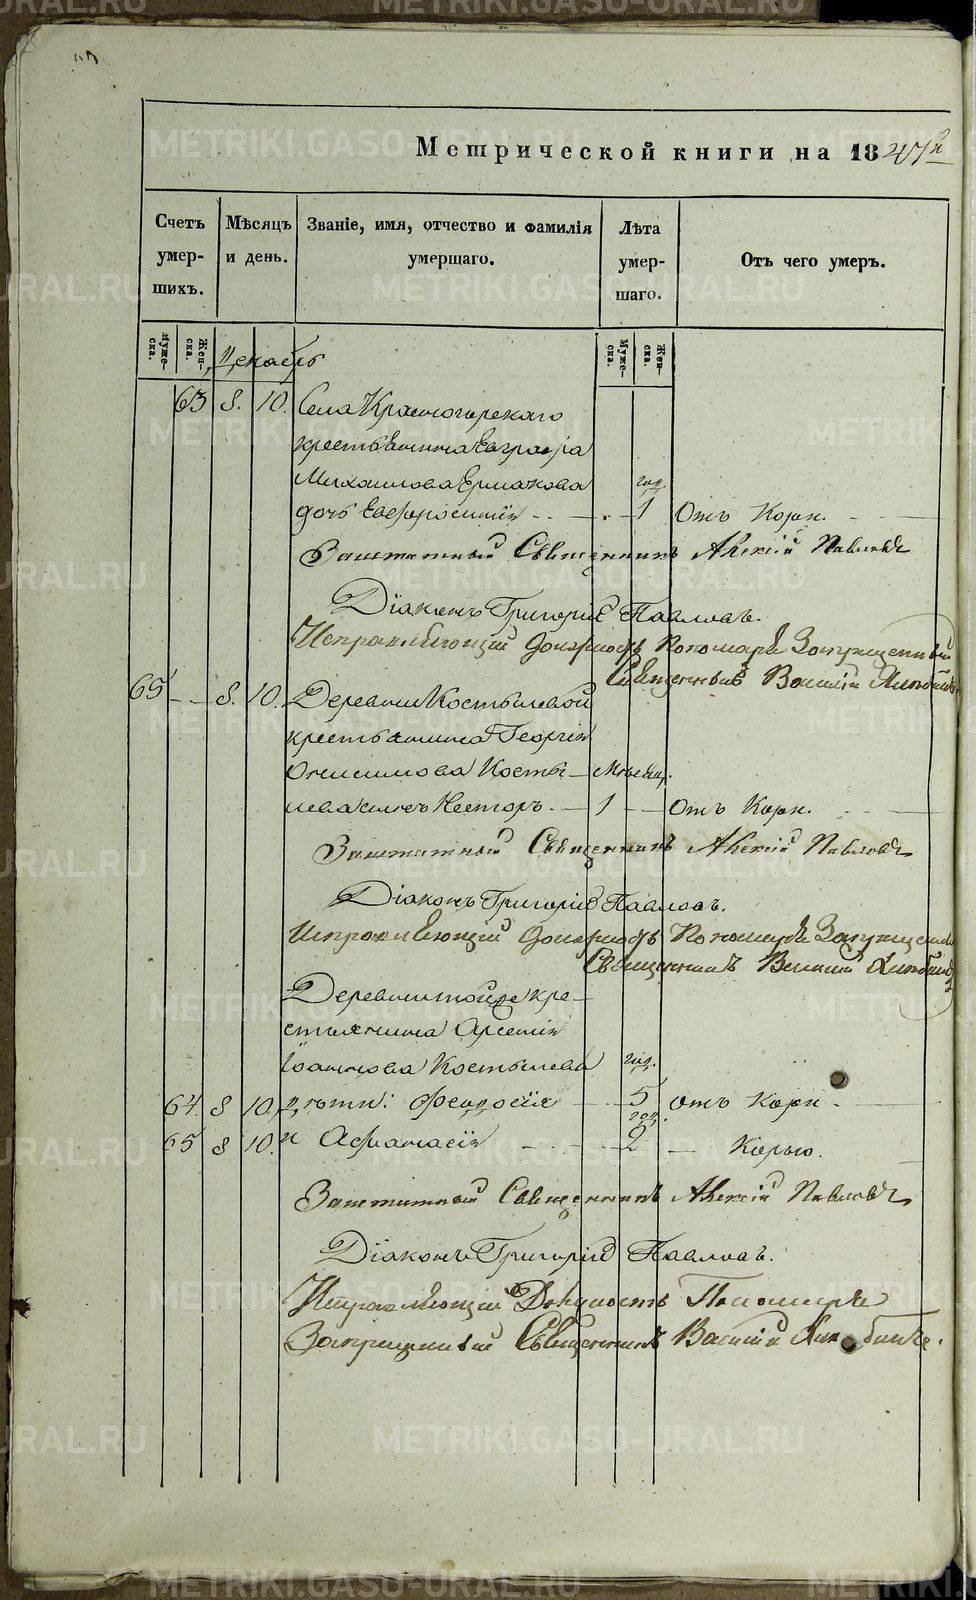 Метрической книги на 1847й
Счетъ умер-шихъ.
Мѣсяцъ и день.
Званіе, имя, отчество и фамилія умершаго.
Лѣта умер-шаго.
Отъ чего умеръ.
Муже-ска. Жен-ска.
Муже-ска. Жен-ска.
Декабрь
63 8. 10. Села Красногорскаго
крестьянина Евграфа
Михайлова Ермакова год.
дочь Евфросинія 1 Отъ Кори.
Заштатный Священникъ Алексій Павловъ
Діаконъ Григорій Павловъ.
Исправляющій должность Пономаря Запрещенный
Священникъ Василій
65 8. 10. Деревни Костылевой
крестьянина Георгія
Онисимова Косты- Мѣсяц.
лева сынъ Несторъ. 1 Отъ Кори.
Заштатный Священникъ Алексій Павловъ
Діаконъ Григорій Павловъ.
Исправляющій должность Пономаря Запрещенный
Священникъ Василій
Деревни тойже кре-
стьянина Арсенія
Іоаннова Костылева год.
64. 8 10. дѣти: Феодосія 5 отъ Кори
год.
65 8 10. и Афанасія 2 — Корью.
Заштатный Священникъ Алексій Павловъ
Діаконъ Григорій Павловъ.
Исправляющій Должность Пономаря
Запрещенный Священникъ Василій
METRIKI.GASO-URAL.RU